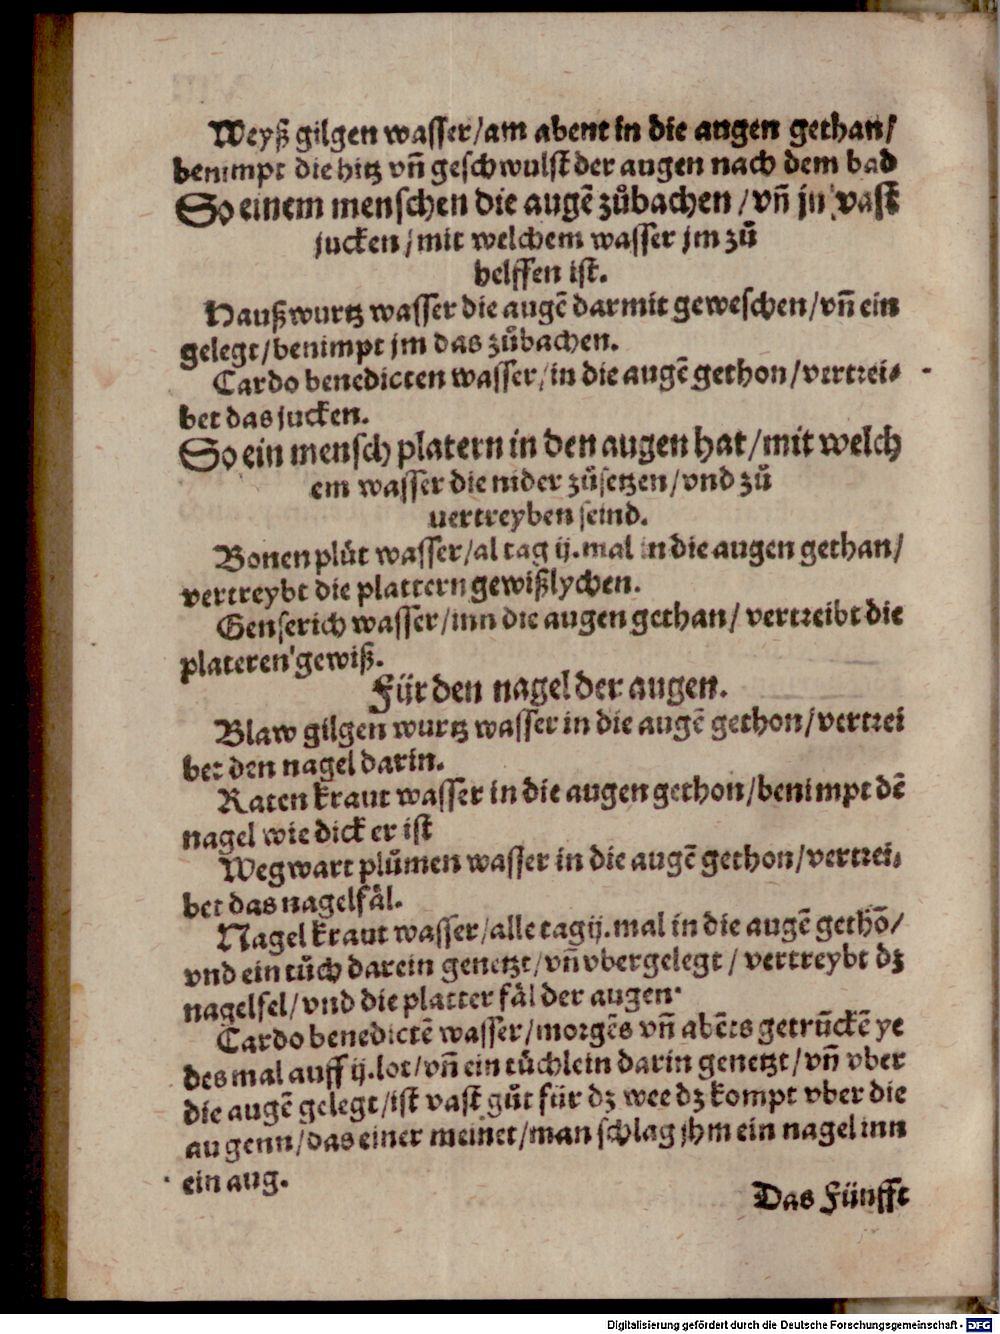 Weyß gilgen wasser/am abent in die augen gethan/
benimpt die hitz vñ geschwulst der augen nach dem bad
So einem menschen die augẽ zůbachen/vñ jn vast
jucken/mit welchem wasser jm zů
helffen ist.
Haußwurtz wasser die augẽ darmit geweschen/vñ ein
gelegt/benimpt jm das zůbachen.
Cardo benedicten wasser/in die augẽ gethon/vertrei-
bet das jucken.
So ein mensch platern in den augen hat/mit welch
em wasser die nider zůsetzen/vnd zů
uertreyben seind.
Bonen plůt wasser/al tag ij.mal in die augen gethan/
vertreybt die plattern gewißlychen.
Genserich wasser/inn die augen gethan/ vertreibt die
plateren gewiß.
Für den nagel der augen.
Blaw gilgen wurtz wasser in die augẽ gethon/vertrei
bet den nagel darin.
Raten kraut wasser in die augen gethon/benimpt dẽ
nagel wie dick er ist
Wegwart plůmen wasser in die augẽ gethon/vertrei-
bet das nagelfäl.
Nagel kraut wasser/alle tag ij.mal in die augẽ gethõ/
vnd ein tůch darein genetzt/vñ vbergelegt/ vertreybt dz
nagelfel/vnd die platter fäl der augen.
Cardo benedictẽ wasser/morgẽs vñ abẽts getrũckẽ ye
des mal auff ij.lot/vñ ein tůchlein darin genetzt/vñ vber
die augẽ gelegt/ist vast gůt für dz wee dz kompt vber die
augenn/das einer meinet/man schlag jhm ein nagel inn
ein aug.
Das Fünfft
Digitalisierung gefördert durch die Deutsche Forschungsgemeinschaft - DFG